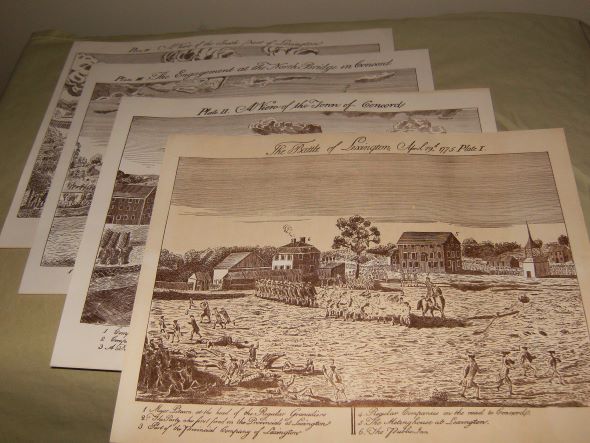 Plate IV A View of the South Part of Lexington
Plate III The Engagement at the North Bridge in Concord
Plate II A View of the Town of Concord
The Battle of Lexington, April 19th 1775 Plate I
1
2
3
1 Major Pitcairn at the head of the Regular Granadiers
2 The Party who first fired on the Provincials at Lexington
3 Part of the Provincial Company of Lexington
4 Regular Companies on the road to Concord
5 The Metinghouse at Lexington
6 The Public Inn